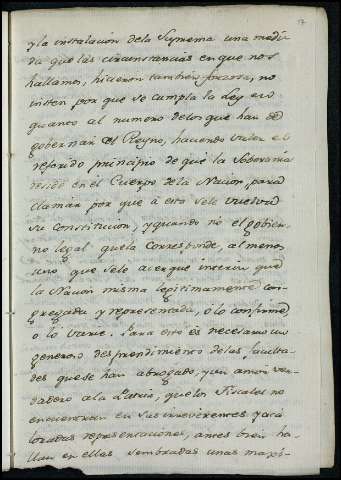 17
y la instalación de la Suprema una medi-
da que las circunstancias en que nos
hallamos, hicieron tambien precisa, no
insten por que se cumpla la Ley en
quanto al numero de los que han de
gobernar el Reyno, haciendo valer el
referido principio de que la Soberania
reside en el Cuerpo de la Nacion, para
clamár por que á esta se le vuelva
su constitucion, y quando no el gobier-
no legal que la corresponde, al menos
uno que se le acerque interin que
la Nacion misma legitimamente con-
gregada y representada, ó lo confirme
ó lo varie. Para esto es necesario un
generoso desprendimiento de las faculta-
des que se han abrogado, y un amor ver-
dadero a la Patria, que los Fiscales no
encuentran en sus irreverentes y aca-
loradas representaciones, antes bien ha-
llan en ellas sembradas unas maxi-